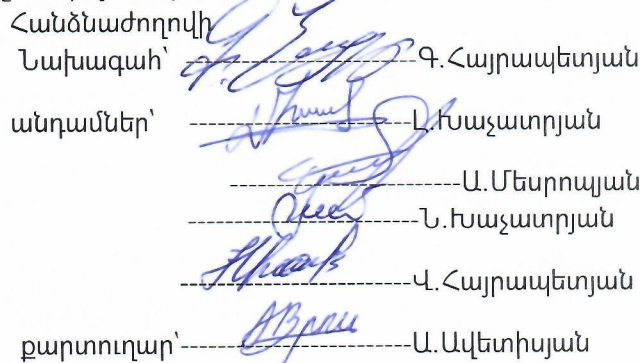 Հանձնաժողովի
Նախագահ՝ ----------------------Գ.Հայրապետյան
անդամներ՝ ----------------------Լ.Խաչատրյան
----------------------Ա.Մեսրոպյան
----------------------Ն.Խաչատրյան
----------------------Վ.Հայրապետյան
քարտուղար՝----------------------Ա.Ավետիսյան